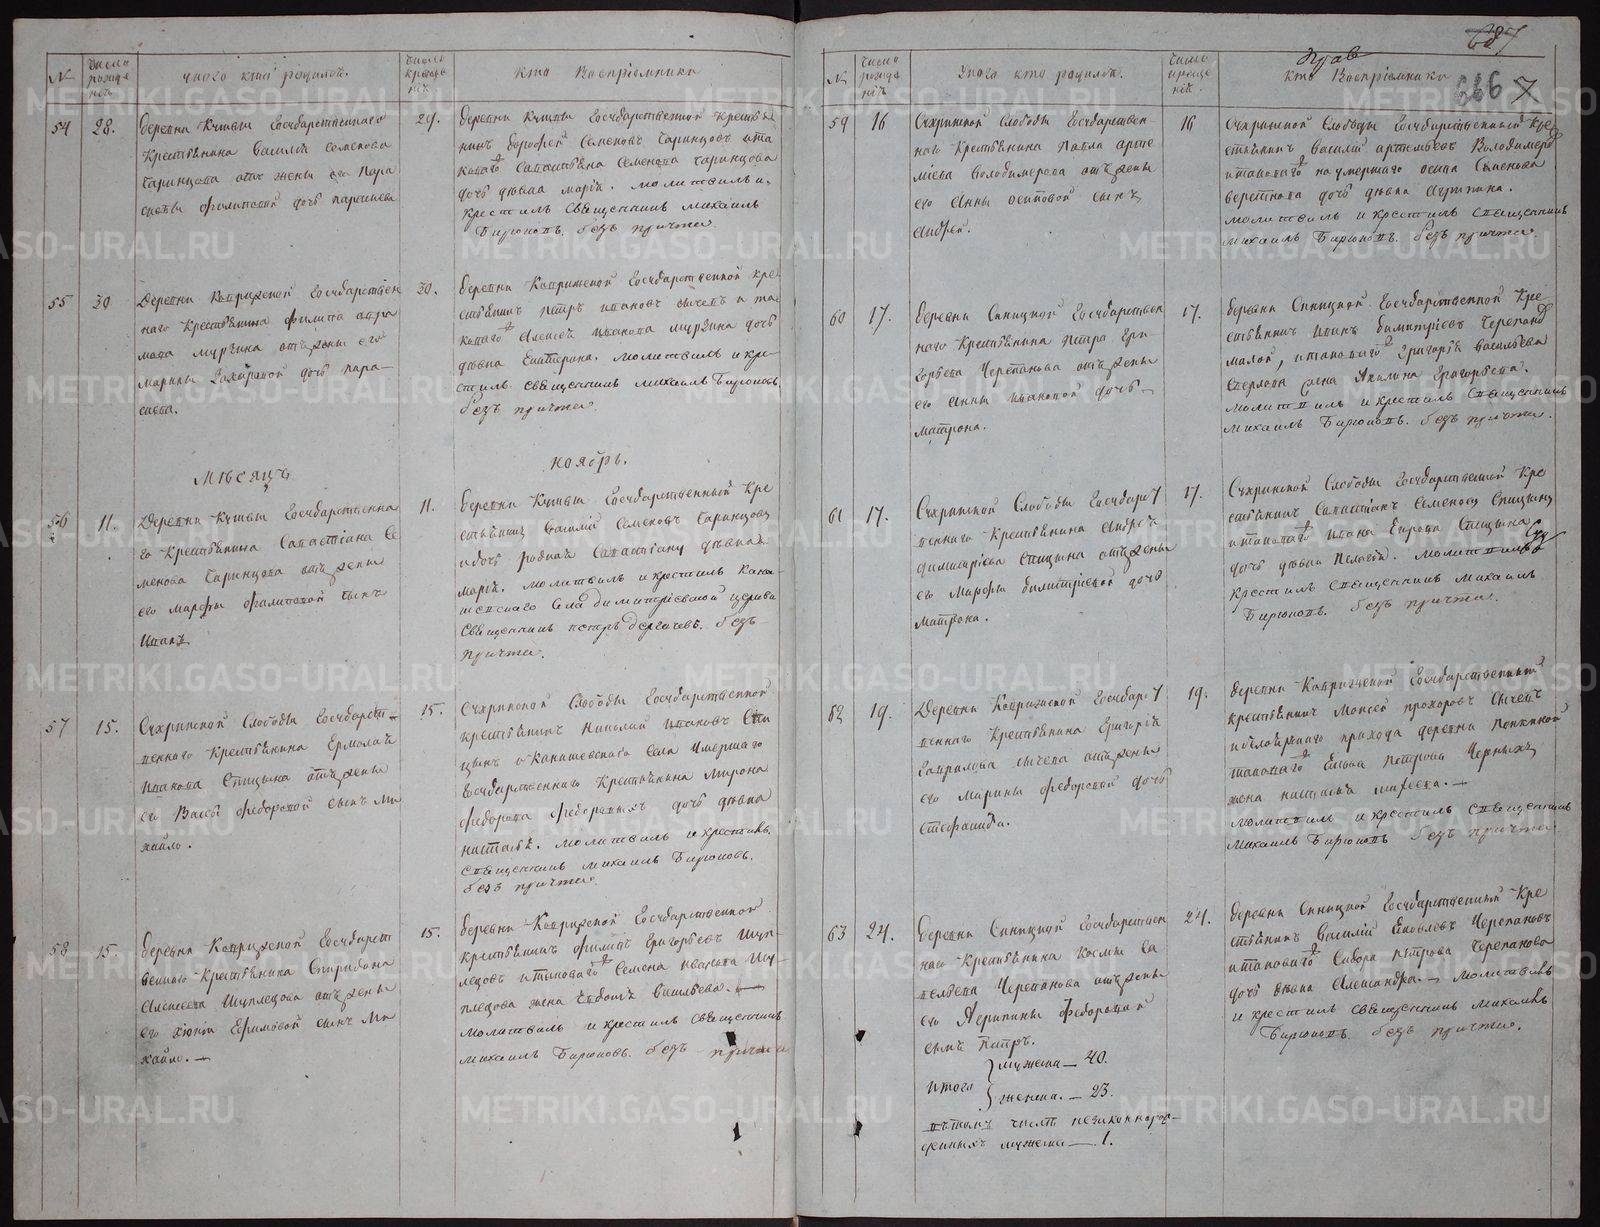 №
число рожде нія
у кого кто родился.
число креще нія
кто Воспріемники
54
28.
деревни Кутвы Государственнаго
Крестьянина Василія Семенова
Таринцова отъ жены его Пара
скевы Филиповой дочь
29.
деревни Кутвы Государственной крестья
нинъ Семеновъ Таринцовъ и та
коваго Севастьяна Семенова Таринцова
дочь девка Марія. молитвилъ и
крестилъ Священникъ Михаилъ
Бирюковъ. безъ причта.
55
30
Деревни Государствен
наго Крестьянина Филипа
Мурзина отъ жены его
Марины Захаровой дочь Пара-
скева.
30.
деревни Государственной кре
стьянинъ Петръ Ивановъ Сычевъ и та
коваго Алексея Иванова Мурзина дочь
девка Екатерина. молитвилъ и кре-
стилъ священникъ Михаилъ Бирюковъ.
безъ причта.
Месяцъ
Ноябрь.
56
11.
Деревни Кутвы Государственна
го Крестьянина Севастіана Се
менова Таринцова отъ жены
его Марфы Филиповой сынъ
Иванъ
11.
деревни Кутвы Государственный Кре
стьянинъ Василій Семеновъ Таринцовъ
и дочь родная Севастіану девка
Марія. молитвилъ и крестилъ Кана
шевскаго Села Димитріевской церкви
Священникъ Петръ Дергачевъ. безъ
причта.
57
15.
Сухринской Слободы Государст-
веннаго Крестьянина Ермолая
Иванова Спицына отъ жены
его Вассы Федоровой сынъ Ми
хайло.
15.
Сухринской Слободы Государственной
крестьянинъ Николай Ивановъ Спи
цынъ и Канашевскаго Села Умершаго
Государственнаго Крестьянина Мирона
Федорова Федоровыхъ дочь девка
Настасья. молитвилъ и крестилъ
священникъ Михаилъ Бирюковъ.
безъ причта.
58
15.
деревни Государст
веннаго Крестьянина Спиридона
Алексеева Шуплецова отъ жены
его Ефимовой сынъ Ми
хайло.—
15.
деревни Государственной
крестьянинъ Филипъ Григорьевъ Шуп-
лецовъ и таковаго Семена Шу-
плецова жена Васильева.—
молитвилъ и крестилъ священникъ
Михаилъ Бирюковъ. безъ причта
687
666
7
№
число рожде нія
У кого кто родился.
число креще нія
Кто Воспріемники
59
16
Сухринской Слободы Государствен-
наго Крестьянина Павла Арте
міева Володимерова отъ жены
его Анны Осиповой сынъ
Андрей.
16
Сухринской Слободы Государственный Кре
стьянинъ Василій Артемьевъ Володимеровъ
и таковаго же умершаго Осипа Семенова
дочь девка
молитвилъ и крестилъ Священникъ
Михаилъ Бирюковъ. безъ причта.
60
17.
деревни Синицкой Государствен
наго Крестьянина Петра Гри-
горьева Черепанова отъ жены
его Анны Ивановой дочь
Матрона.
17.
деревни Синицкой Государственной Кре
стьянинъ Димитріевъ Черепановъ
малой, и таковаго Григорія Васильева
жена Акилина Григорьева.
молитвилъ и крестилъ Священникъ
Михаилъ Бирюковъ. безъ причта.
61
17.
Сухринской Слободы Государст
веннаго Крестьянина Андрея
Димитріева Спицына отъ жены
его Марфы Димитріевой дочь
Матрона.
17.
Сухринской Слободы Государственной Кре
стьянинъ Севастіанъ Семеновъ Спицынъ
и таковаго Ивана Спицына
дочь девка Пелагея. молитвилъ
крестилъ Священникъ Михаилъ
Бирюковъ. безъ причта.
62
19.
Деревни Государст
веннаго Крестьянина Григорія
Гаврилова Сычева отъ жены
его Марины Федоровой дочь
Стефанида.
19.
деревни Государственный
крестьянинъ Моисей Прохоровъ Сычевъ
и прихода деревни
таковаго Петрова Черныхъ
жена Настасья —
молитвилъ и крестилъ священникъ
Михаилъ Бирюковъ безъ причта
63
24.
деревни Синицкой Государствен
наго Крестьянина Космы Са
вельева Черепанова отъ жены
его Агрипины Федоровой
сынъ Петръ.
Итого
мужеска — 40.
женска. — 23.
въ томъ числе незаконнорож-
денныхъ мужеска — 1.
24.
деревни Синицкой Государственный Кре
стьянинъ Василій Яковлевъ Черепановъ
и таковаго Сидора Петрова Черепанова
дочь девка Александра.— молитвилъ
и крестилъ священникъ Михаилъ
Бирюковъ. безъ причта.
METRIKI.GASO-URAL.RU